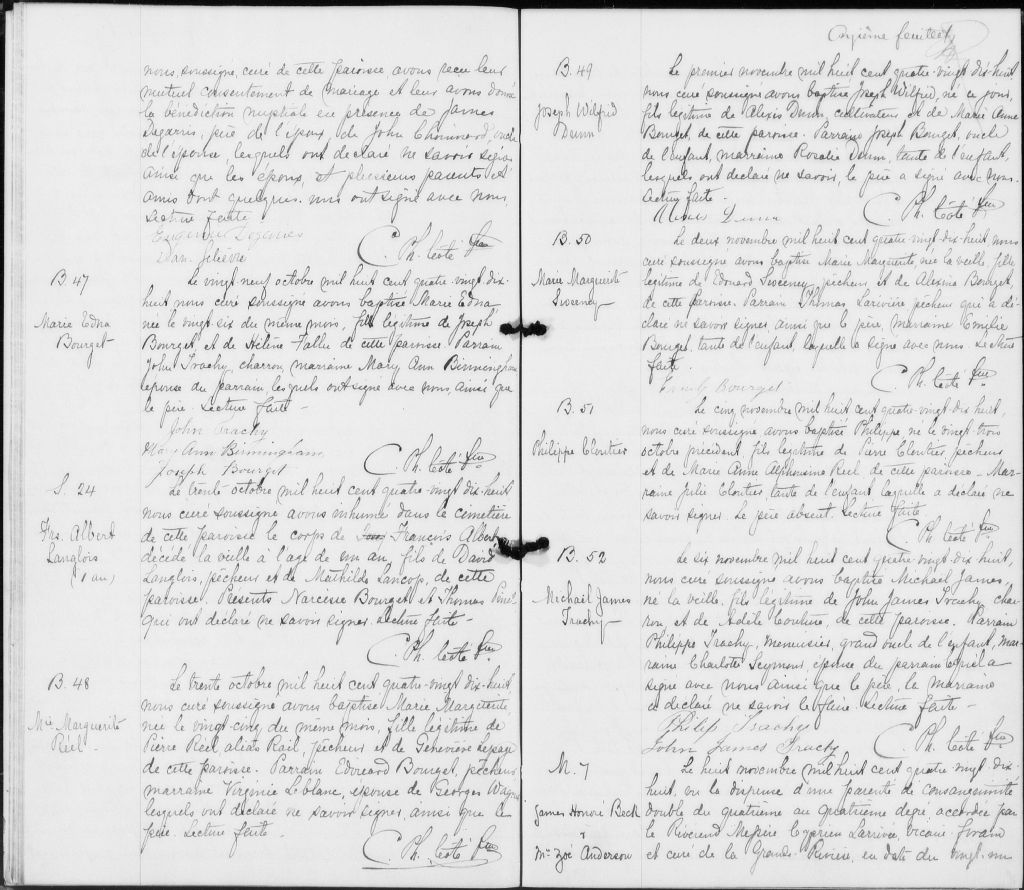 nous, soussigné, curé de cette paroisse, avons reçu leur
mutuel consentement de mariage et leur avons donné
la bénédiction nuptiale en présence de James
père de l'époux, de John oncle
de l'épouse, lesquels ont déclaré ne savoir signer
ainsi que les époux, et plusieurs parents et
amis dont quelques-uns ont signé avec nous,
Lecture faite
C. Ph. Côté Ptre
B. 47
Marie Edna
Bourget
Le vingt neuf octobre mil huit cent quatre-vingt dix-
huit nous curé soussigné avons baptisé Marie Edna
née le vingt-six du même mois, fille légitime de Joseph
Bourget et de Hélène Vallée de cette paroisse. Parrain
John Trachy, charron, marraine Mary Ann Birmingham
épouse du parrain lesquels ont signé avec nous, ainsi que
le père. Lecture faite -
John Trachy
Mary Ann Birmingham
Joseph Bourget
C. Ph. Côté Ptre
S. 24
Frs. Albert
Langlois
1 an)
Le trente octobre mil huit cent quatre-vingt dix-huit
nous curé soussigné avons inhumé dans le cimetière
de cette paroisse le corps de François Albert
décédé la veille à l'age de un an, fils de David
Langlois, pêcheur et de Mathilde de cette
paroisse. Présents Narcisse Bourget et Thomas
qui ont déclaré ne savoir signer. Lecture faite -
C. Ph. Côté Ptre
B. 48
Mie Marguerite
Réel -
Le trente octobre mil huit cent quatre-vingt dix-huit,
nous curé soussigné avons baptisé Marie Marguerite
née le vingt-cinq du même mois, fille légitime de
Pierre Réel alias Rail, pêcheur et de Geneviève Lepage
de cette paroisse. Parrain Edouard Bourget, pêcheur,
marraine Virginie Leblanc, épouse de Georges
lesquels ont déclaré ne savoir signer, ainsi que le
père. Lecture faite -
C. Ph. Côté Ptre
Onzième feuillet
B. 49
Joseph Wilfrid
Dunn
Le premier novembre mil huit cent quatre-vingt dix-huit
nous curé soussigné avons baptisé Joseph Wilfrid, né ce jour,
fils légitime de Alexis Dunn, cultivateur et de Marie Anne
Bourget, de cette paroisse. Parrain Joseph Bourget, oncle
de l'enfant, marraine Rosalie Dunn, tante de l'enfant,
lesquels ont déclaré ne savoir, le père a signé avec nous.
Lecture faite.
C. Ph. Côté Ptre
B. 50
Marie Marguerite
Sweeney
Le deux novembre mil huit cent quatre-vingt-dix-huit nous
curé soussigné avons baptisé Marie Marguerite, née la veille, fille
légitime de Edouard Sweeney, pêcheur, et de Alexina Bourget,
de cette paroisse. Parrain Thomas Larivière pêcheur qui a dé-
claré ne savoir signer, ainsi que le père, marraine Emilie
Bourget, tante de l'enfant, laquelle a signé avec nous. Lecture
faite.
Emily Bourget
C. Ph. Côté Ptre
B. 51
Philippe Cloutier
Le cinq novembre mil huit cent quatre-vingt-dix huit,
nous curé soussigné avons baptisé Philippe né le vingt trois
octobre précédent, fils légitime de Pierre Cloutier, pêcheur
et de Marie Anne Alphonsine Réel de cette paroisse - Mar-
raine Julie Cloutier, tante de l'enfant laquelle a déclaré ne
savoir signer. Le père absent. Lecture faite.
C. Ph. Côté Ptre
B. 52
Michaël James
Trachy -
Le six novembre mil huit cent quatre-vingt dix huit,
nous curé soussigné avons baptisé Michaël James,
né la veille, fils légitime de John James Trachy, char-
ron, et de Adèle Couture, de cette paroisse. Parrain
Philippe Trachy, menuisier, grand oncle de l'enfant, mar-
raine Charlotte Seymour, épouse du parrain lequel a
signé avec nous ainsi que le père, la marraine
a déclaré ne savoir le faire. Lecture faite -
Philip Trachy
John James Trachy
C. Ph. Côté Ptre
M. 7
James Honoré Beck
&
Mie Zoé Anderson
Le huit novembre mil huit cent quatre vingt dix-
huit, vu la dispense d'une parenté de consanguinité
double du quatrième au quatrième degré accordée par
le Révérend Messire Cyprien Larrivée, vicaire-forain
et curé de la Grande-Rivière, en date du vingt-un